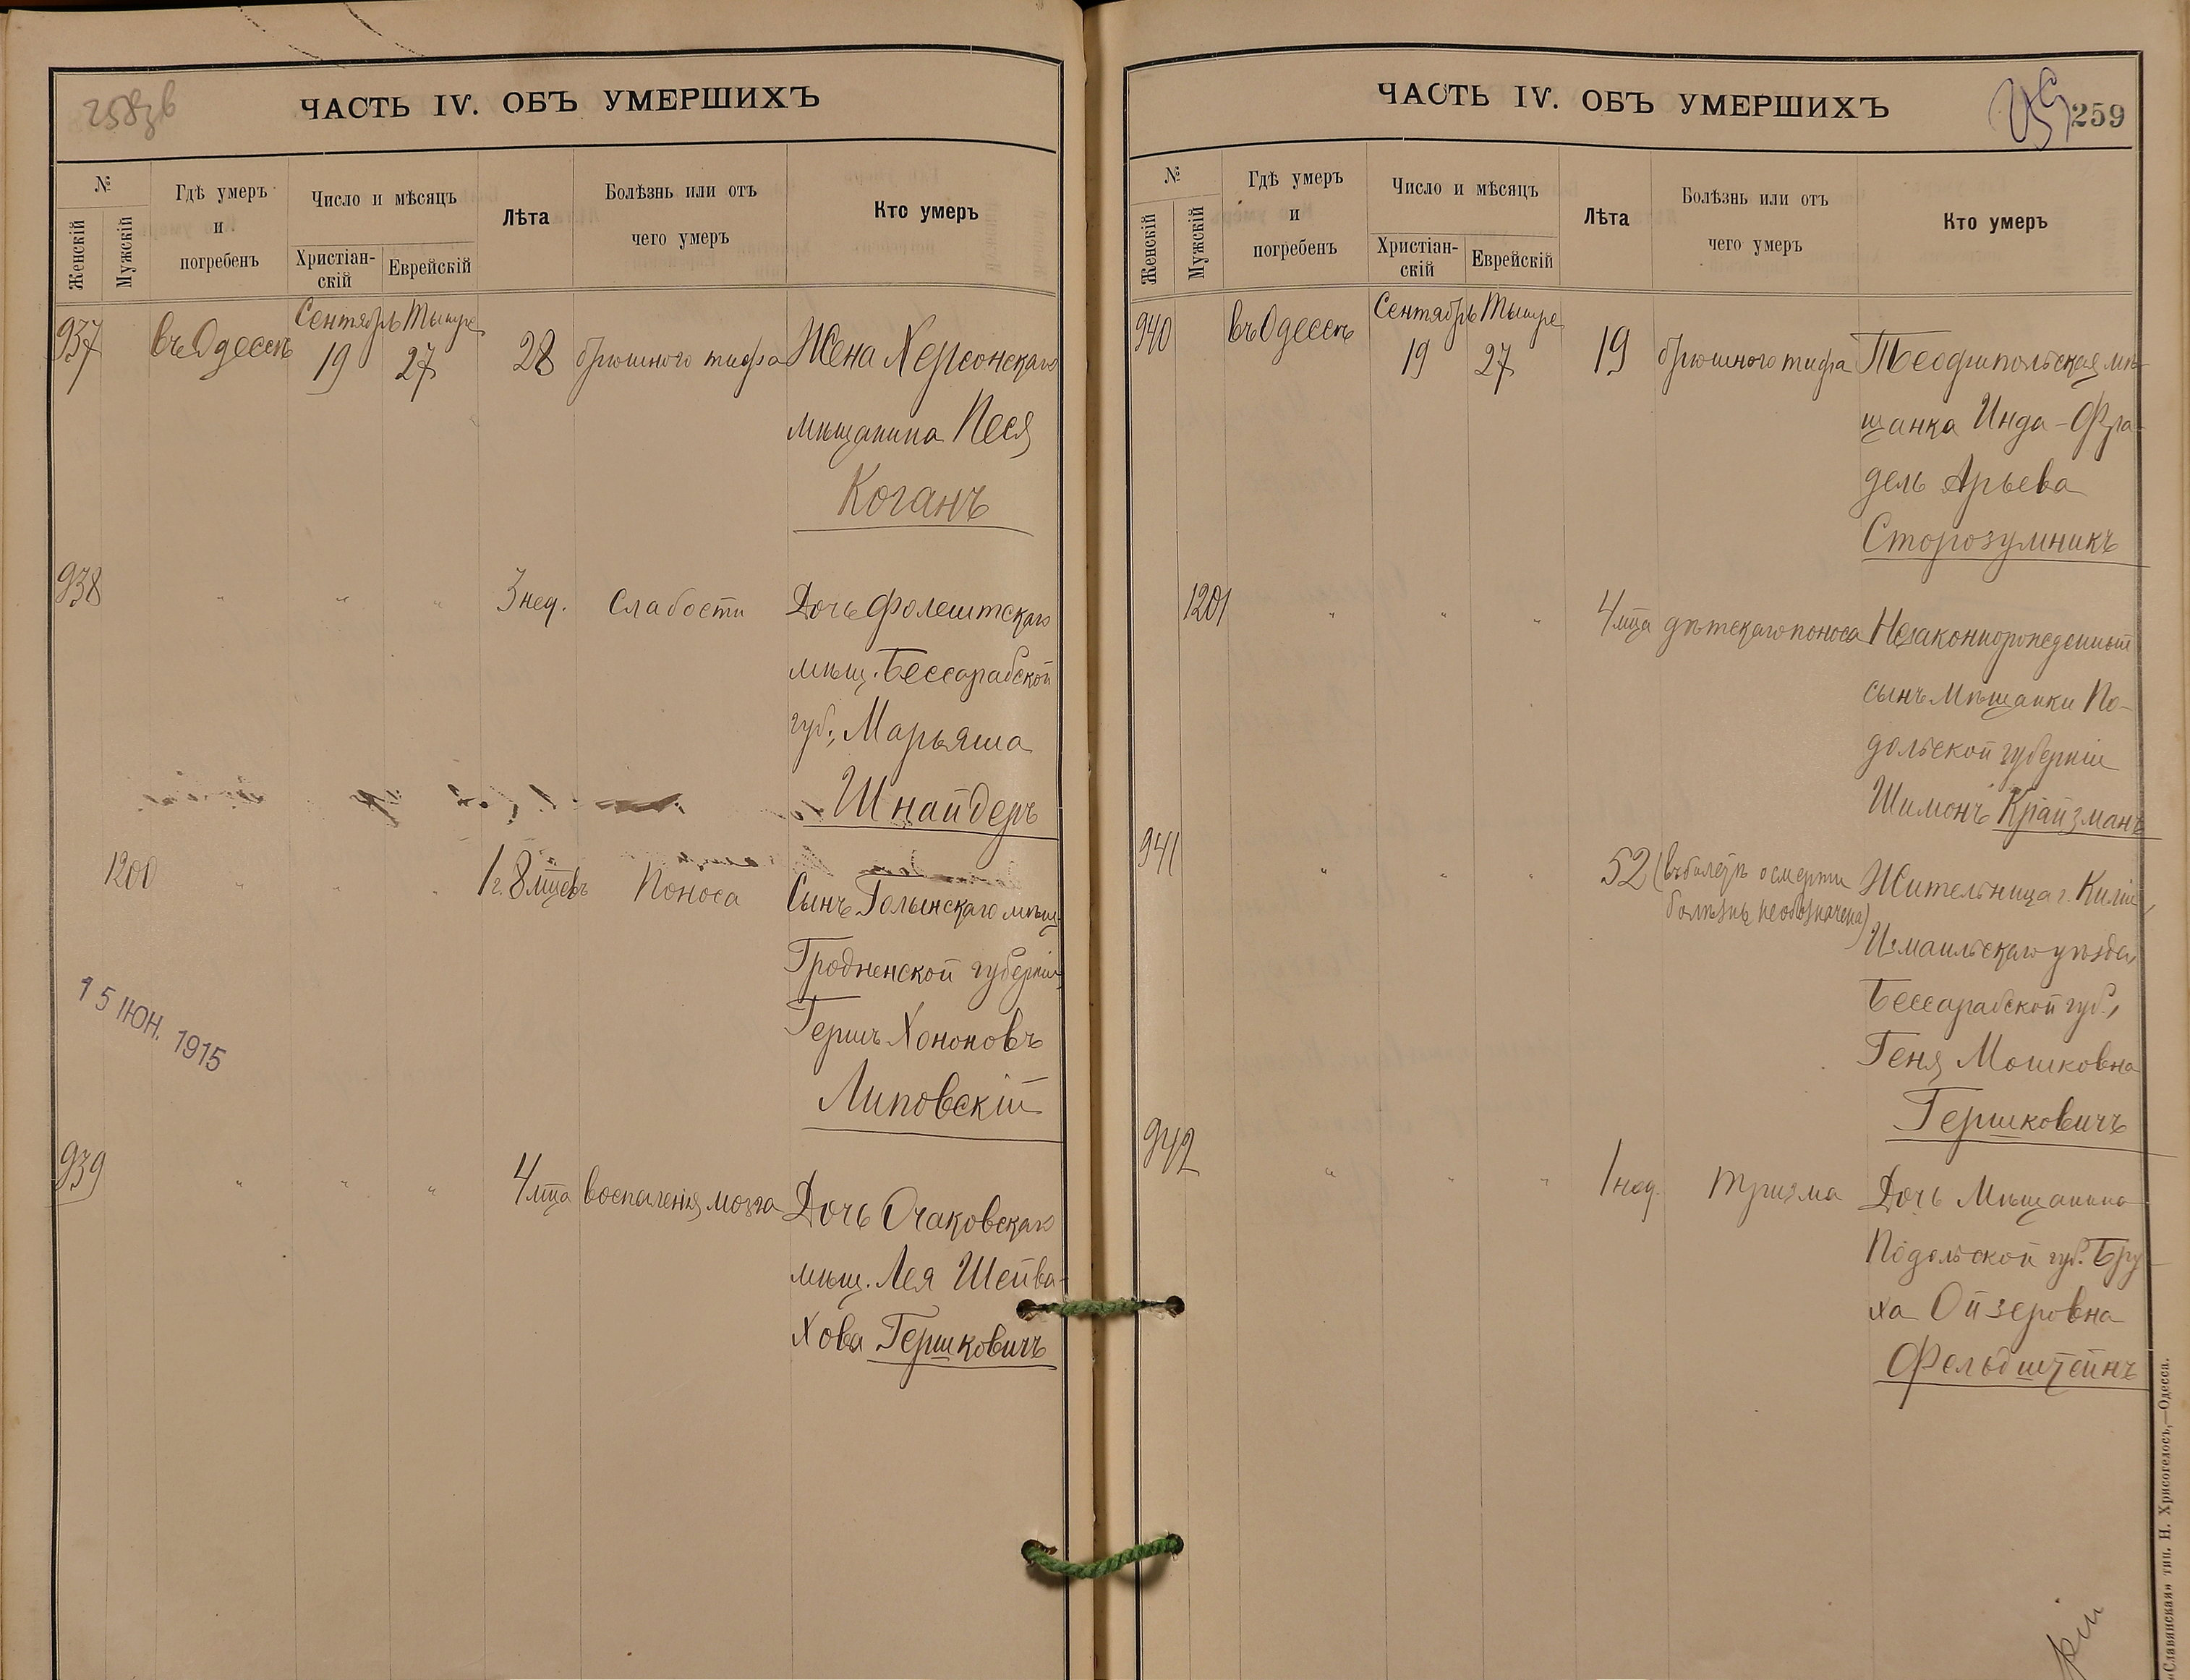 258 зв
ЧАСТЬ IV. ОБЪ УМЕРШИХЪ
№
Женскій
Мужскій
Гдѣ умеръ
и
погребенъ
Число и мѣсяцъ
Христіан-
скій
Еврейскій
Лѣта
Болѣзнь или отъ
чего умеръ
Кто умеръ
937 въ Одессѣ Сентябрь 19 Тышре 27 28 брюшного тифа Жена Херсонскаго
мѣщанина Песя
Коганъ
938 " " " 3 нед. Слабости Дочь Фолештскаго
мѣщ. Бессарабской
губ., Марьяша
Шнайдеръ
1200 " " " 1 г. 8 мцевъ Поноса Сынъ Голынскаго мѣщ.
Гродненской губерніи
Гершъ Хононовъ
Липовскій
15 ІЮН. 1915
939 " " " 4 мца воспаленія мозга Дочь Очаковскаго
мѣщ. Лея Шейва-
хова Гершковичъ
ЧАСТЬ IV. ОБЪ УМЕРШИХЪ
259
№
Женскій
Мужскій
Гдѣ умеръ
и
погребенъ
Число и мѣсяцъ
Христіан-
скій
Еврейскій
Лѣта
Болѣзнь или отъ
чего умеръ
Кто умеръ
940 въ Одессѣ Сентябрь 19 Тышре 27 19 брюшного тифа Теофипольская мѣ-
щанка Инда-Фра-
дель Арьева
Сторозумникъ
1201 " " " 4 мца дѣтскаго поноса Незаконнорожденный
сынъ мѣщанки По-
дольской губерніи
Шимонъ Крайзманъ
941 " " " 52 (въ билетѣ о смерти Жительница г. Киліи,
болѣзнь не обозначена)
Измаильскаго уѣзда,
Бессарабской губ.,
Геня Мошковна
Гершковичъ
942 " " " 1 нед. тризма Дочь Мѣщанина
Подольской губ. Бру-
ха Ойзеровна
Фельдштейнъ
«Славянская» тип. Н. Хрисогелосъ,—Одесса.